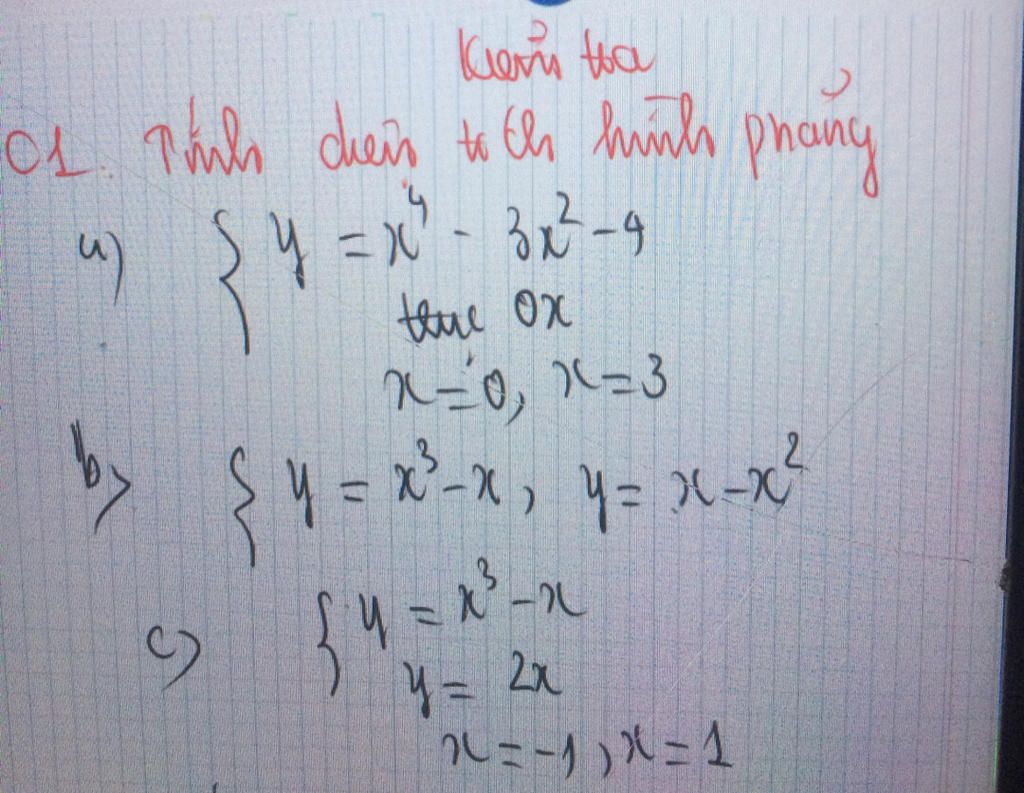 Kiểm tra
C1. Tính diện tích hình phẳng
a) { y = x⁴ - 3x² - 4
trục 0x
x = 0, x = 3
b) { y = x³ - x, y = x - x²
c) { y = x³ - x
y = 2x
x = -1, x = 1